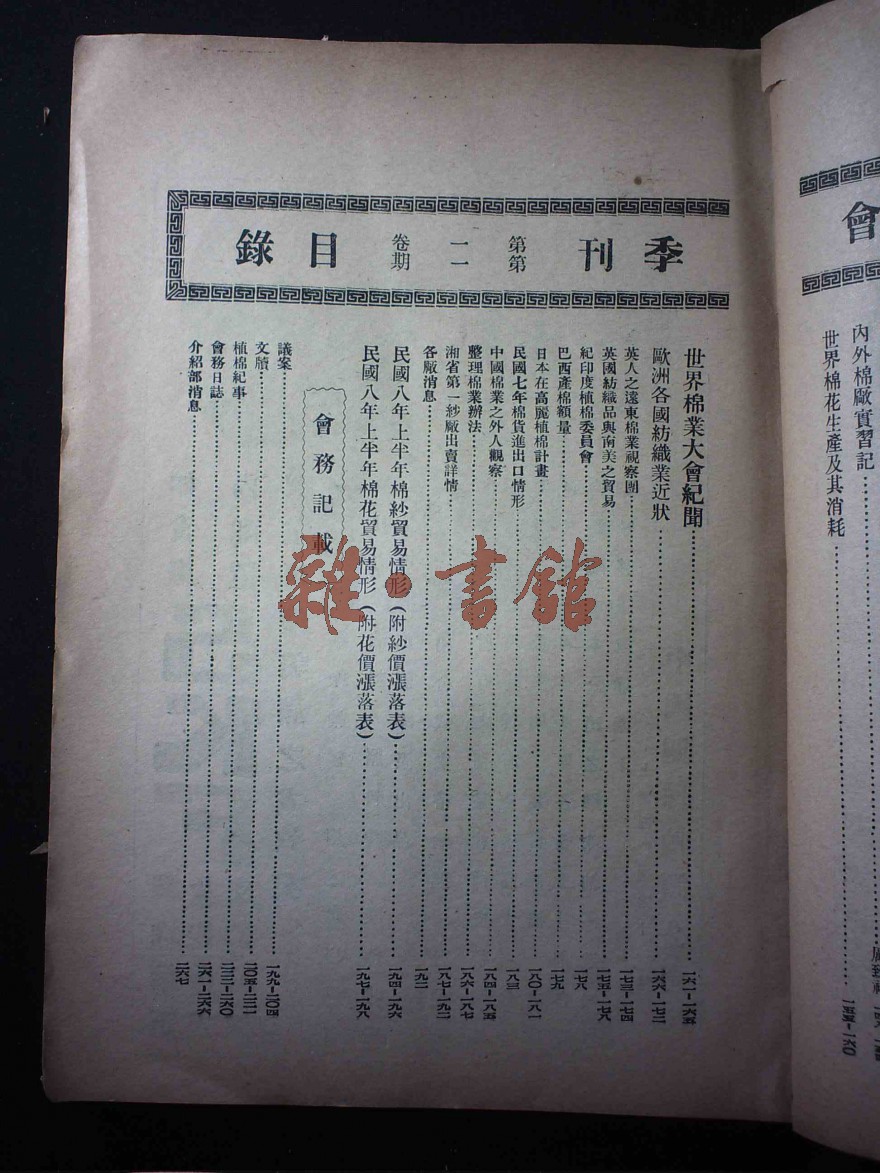 會
內外棉廠實習記
世界棉花生產及其消耗……一五五-一六〇
季刊 第一卷 第一期 目錄
世界棉業大會紀聞……一六一-一六五
歐洲各國紡織業近狀……一六六-一七二
英人之遠東棉業視察團……一七三-一七四
英國紡織品與南美之貿易……一七五-一七八
紀印度植棉委員會……一七八
巴西產棉額量……一七九
日本在高麗植棉計畫……一八〇-一八一
民國七年棉貨進出口情形……一八三
中國棉業之外人觀察……一八四-一八五
整理棉業辦法……一八六-一八七
湘省第一紗廠出賣詳情……一八七-一九二
各廠消息……一九二
民國八年上半年棉紗貿易情形(附紗價漲落表)……一九四-一九六
民國八年上半年棉花貿易情形(附花價漲落表)……一九七-一九八
會務記載
議案……一九九-二〇四
文牘……二〇五-二三一
植棉紀事……二三二-二六〇
會務日誌……二六一-二六六
介紹部消息……二六七
雜·書館